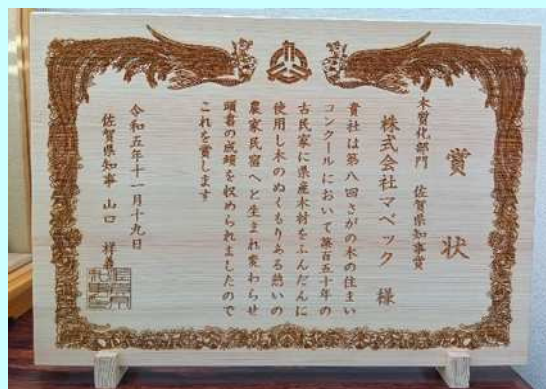 賞状
木質化部門 佐賀県知事賞
株式会社マベック 様
貴社は第八回さがの木の住まい
コンクールにおいて築百五十年の
古民家に県産木材をふんだんに
使用し木のぬくもりある憩いの
農家民宿へと生まれ変わらせ
頭書の成績を収められましたので
これを賞します
令和五年十一月十九日
佐賀県知事 山口 祥義